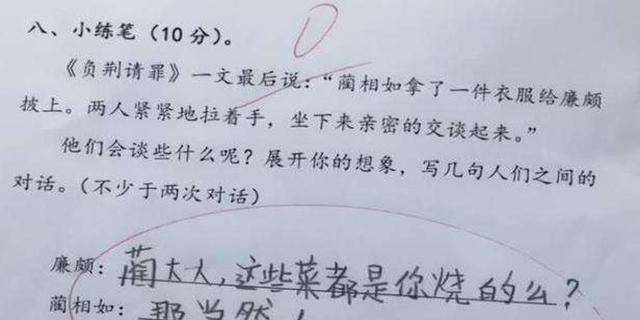 八、小练笔（10分）。
0
《负荆请罪》一文最后说：“蔺相如拿了一件衣服给廉颇
披上。两人紧紧地拉着手，坐下来亲密的交谈起来。”
他们会谈些什么呢？展开你的想象，写几句人们之间的
对话。（不少于两次对话）
廉颇：蔺大人，这些菜都是你烧的么？
蔺相如：那当然！